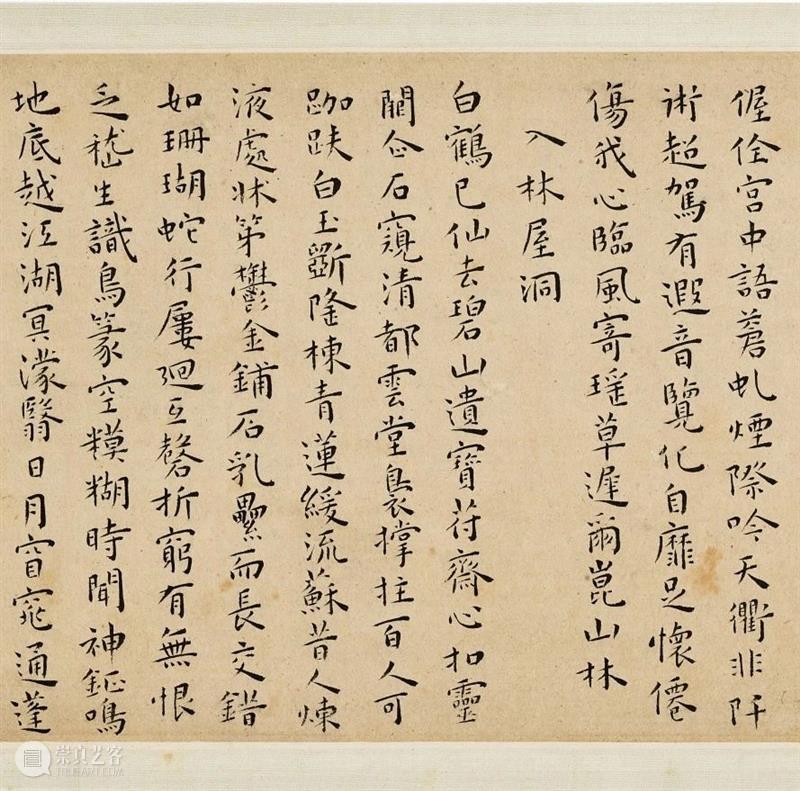 偓佺宮中語蒼虬煙際吟天衢非阡
術超駕有遐音覽化自靡足懷僊
傷我心臨風寄瑤草遲爾崑山林
入林屋洞
白鶴已仙去碧山遺寶苻齋心扣靈
閫企石窺清都雲堂裊撑拄百人可
跏趺白玉斵隆棟青蓮緩流蘇昔人煉
液處牀第鬱金鋪石乳纍而長交錯
如珊瑚蛇行屢迴互磬折窮有無恨
乏嵇生識鳥篆空糢糊時聞神鉦鳴
地底越江湖冥濛翳日月窅窕通蓬
崇真艺客
TRUEART.COM